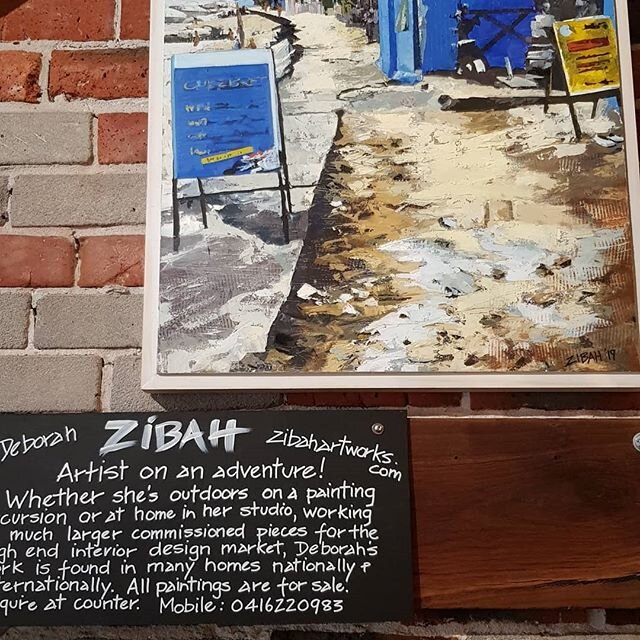 ZIBAH '19
Deborah ZIBAH zibahartworks.
com
Artist on an adventure!
Whether she's outdoors on a painting
cursion or at home in her studio, working
much larger commissioned pieces for the
gh end interior design market, Deborah's
rk is found in many homes nationally &
ternationally. All paintings are for sale.
quire at counter. Mobile: 0416220983